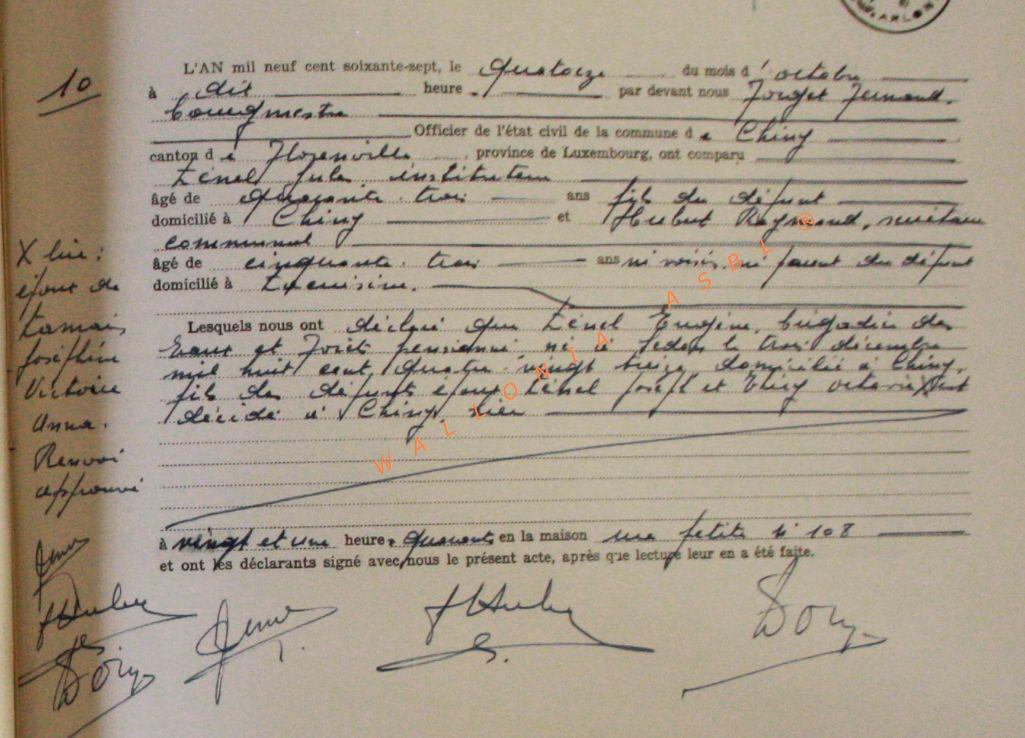 ARLON
10
L'AN mil neuf cent soixante-sept, le quatorze du mois d'octobre
à dix heure par devant nous Fernand,
bourgmestre
Officier de l'état civil de la commune de Chiny
canton de Florenville, province de Luxembourg, ont comparu
Zénel Jules, instituteur
âgé de quarante trois ans fils du défunt
domicilié à Chiny et Hubert Raymond, secrétaire
communal
âgé de cinquante trois ans ni voisin, ni parent du défunt
domicilié à
Lesquels nous ont déclaré que Zénel Eugène, brigadier des
Eaux et Forêts pensionné né à le trois décembre
mil huit cent quatre vingt treize domicilié à Chiny,
fils des défunts époux Zénel Joseph et Octavie X est
décédé à Chiny hier
à vingt et une heures quarante en la maison rue petite n° 108
et ont les déclarants signé avec nous le présent acte, après que lecture leur en a été faite.
X lire :
époux de
Lamais
Joséphine
Victoire
Anna.
Renvoi
approuvé
WALLONIA ASBL ®